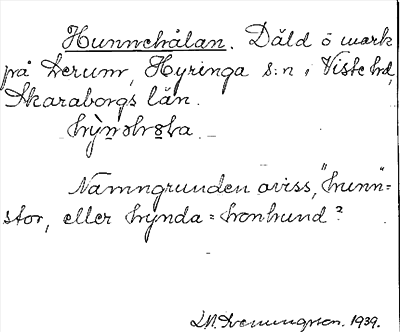 Hunnehålan. Dåld ö mark
på Lerum, Hyringa s:n i Viste hd,
Skaraborgs län.
Namngrunden oviss, "hunn"=
stor, eller hynda = honhund?
1939.